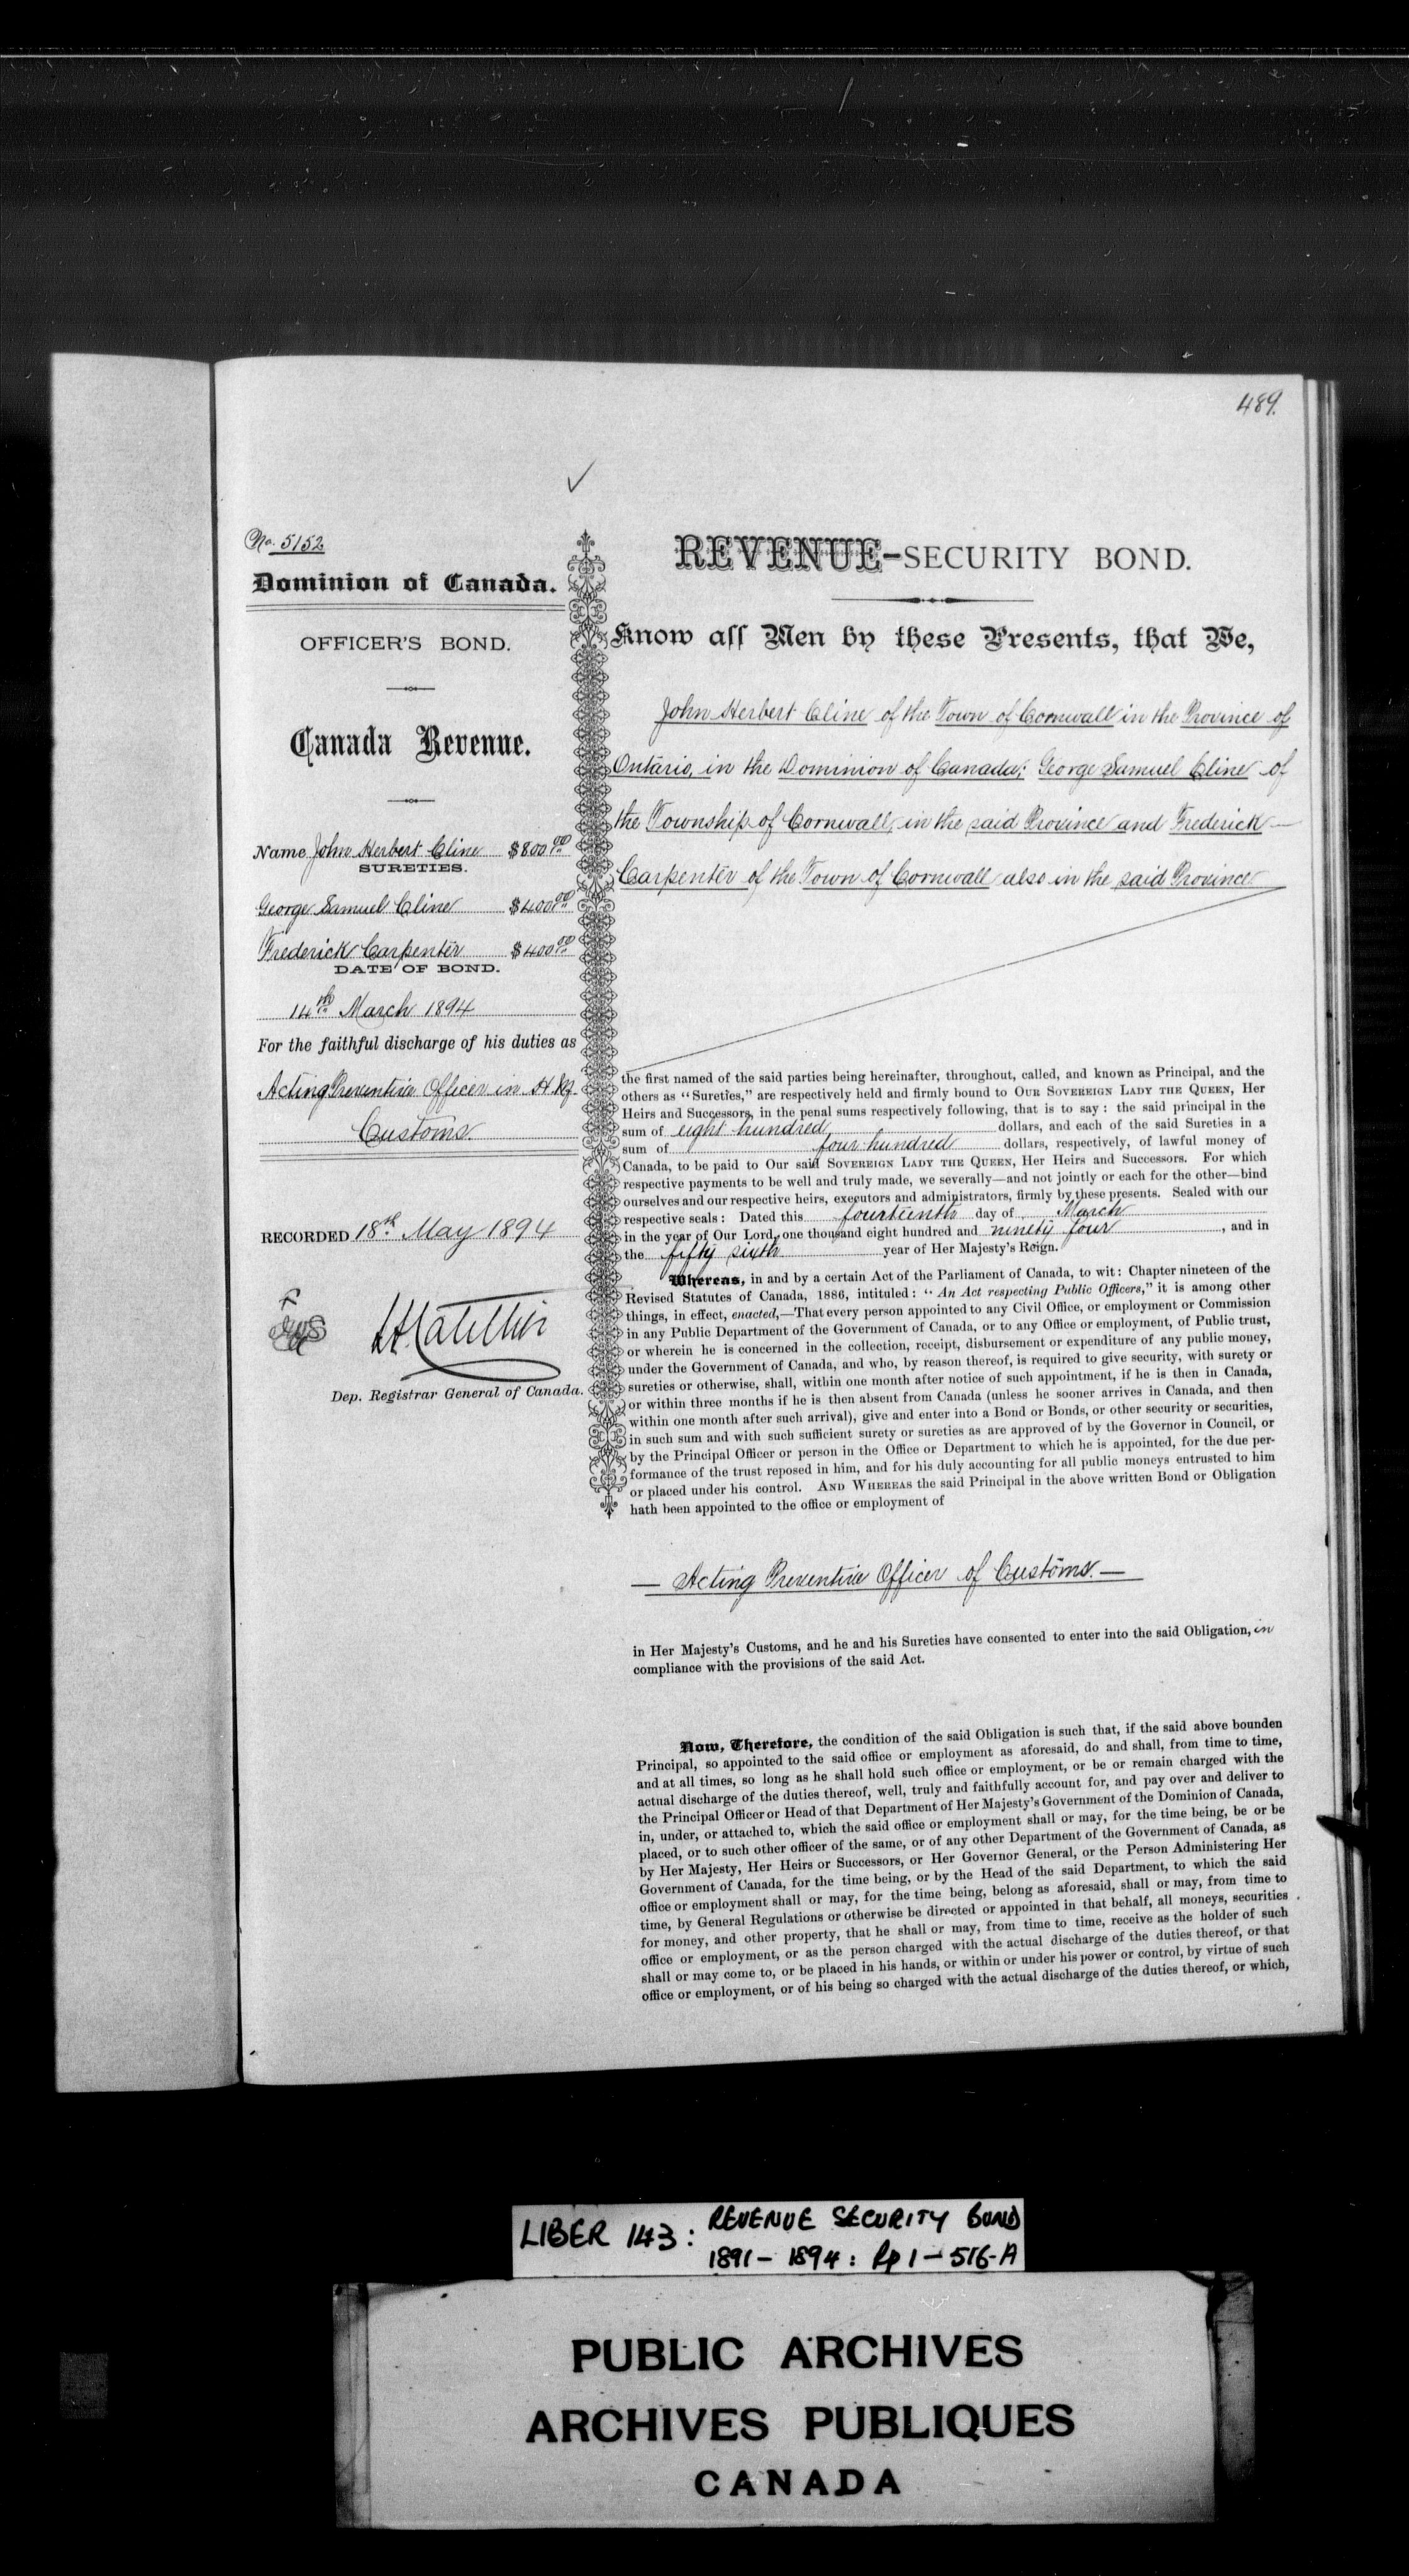 489.
No. 5152
Dominion of Canada.
OFFICER'S BOND.
Canada Revenue.
Name John Herbert Cline $800.00
SURETIES.
George Samuel Cline $400.00
Frederick Carpenter $400.00
DATE OF BOND.
14th March 1894
For the faithful discharge of his duties as
Acting Preventive Officer in H. My.
Customs.
RECORDED 18th May 1894
Dep. Registrar General of Canada.
REVENUE-SECURITY BOND.
Know all Men by these Presents, that We,
John Herbert Cline of the Town of Cornwall in the Province of
Ontario, in the Dominion of Canada; George Samuel Cline of
the Township of Cornwall, in the said Province and Frederick
Carpenter of the Town of Cornwall also in the said Province
the first named of the said parties being hereinafter, throughout, called, and known as Principal, and the
others as "Sureties," are respectively held and firmly bound to OUR SOVEREIGN LADY THE QUEEN, Her
Heirs and Successors, in the penal sums respectively following, that is to say: the said principal in the
sum of eight hundred dollars, and each of the said Sureties in a
sum of four hundred dollars, respectively, of lawful money of
Canada, to be paid to Our said SOVEREIGN LADY THE QUEEN, Her Heirs and Successors. For which
respective payments to be well and truly made, we severally—and not jointly or each for the other—bind
ourselves and our respective heirs, executors and administrators, firmly by these presents. Sealed with our
respective seals: Dated this fourteenth day of March
in the year of Our Lord, one thousand eight hundred and ninety four, and in
the fifty sixth year of Her Majesty's Reign.
Whereas, in and by a certain Act of the Parliament of Canada, to wit: Chapter nineteen of the
Revised Statutes of Canada, 1886, intituled: "An Act respecting Public Officers," it is among other
things, in effect, enacted,—That every person appointed to any Civil Office, or employment or Commission
in any Public Department of the Government of Canada, or to any Office or employment, of Public trust,
or wherein he is concerned in the collection, receipt, disbursement or expenditure of any public money,
under the Government of Canada, and who, by reason thereof, is required to give security, with surety or
sureties or otherwise, shall, within one month after notice of such appointment, if he is then in Canada,
or within three months if he is then absent from Canada (unless he sooner arrives in Canada, and then
within one month after such arrival), give and enter into a Bond or Bonds, or other security or securities,
in such sum and with such sufficient surety or sureties as are approved of by the Governor in Council, or
by the Principal Officer or person in the Office or Department to which he is appointed, for the due per-
formance of the trust reposed in him, and for his duly accounting for all public moneys entrusted to him
or placed under his control. AND WHEREAS the said Principal in the above written Bond or Obligation
hath been appointed to the office or employment of
— Acting Preventive Officer of Customs. —
in Her Majesty's Customs, and he and his Sureties have consented to enter into the said Obligation, in
compliance with the provisions of the said Act.
Now, Therefore, the condition of the said Obligation is such that, if the said above bounden
Principal, so appointed to the said office or employment as aforesaid, do and shall, from time to time,
and at all times, so long as he shall hold such office or employment, or be or remain charged with the
actual discharge of the duties thereof, well, truly and faithfully account for, and pay over and deliver to
the Principal Officer or Head of that Department of Her Majesty's Government of the Dominion of Canada,
in, under, or attached to, which the said office or employment shall or may, for the time being, be or be
placed, or to such other officer of the same, or of any other Department of the Government of Canada, as
by Her Majesty, Her Heirs or Successors, or Her Governor General, or the Person Administering Her
Government of Canada, for the time being, or by the Head of the said Department, to which the said
office or employment shall or may, for the time being, belong as aforesaid, shall or may, from time to
time, by General Regulations or otherwise be directed or appointed in that behalf, all moneys, securities
for money, and other property, that he shall or may, from time to time, receive as the holder of such
office or employment, or as the person charged with the actual discharge of the duties thereof, or that
shall or may come to, or be placed in his hands, or within or under his power or control, by virtue of such
office or employment, or of his being so charged with the actual discharge of the duties thereof, or which,
LIBER 143: REVENUE SECURITY BOND
1891-1894: Pp 1-516-A
PUBLIC ARCHIVES
ARCHIVES PUBLIQUES
CANADA